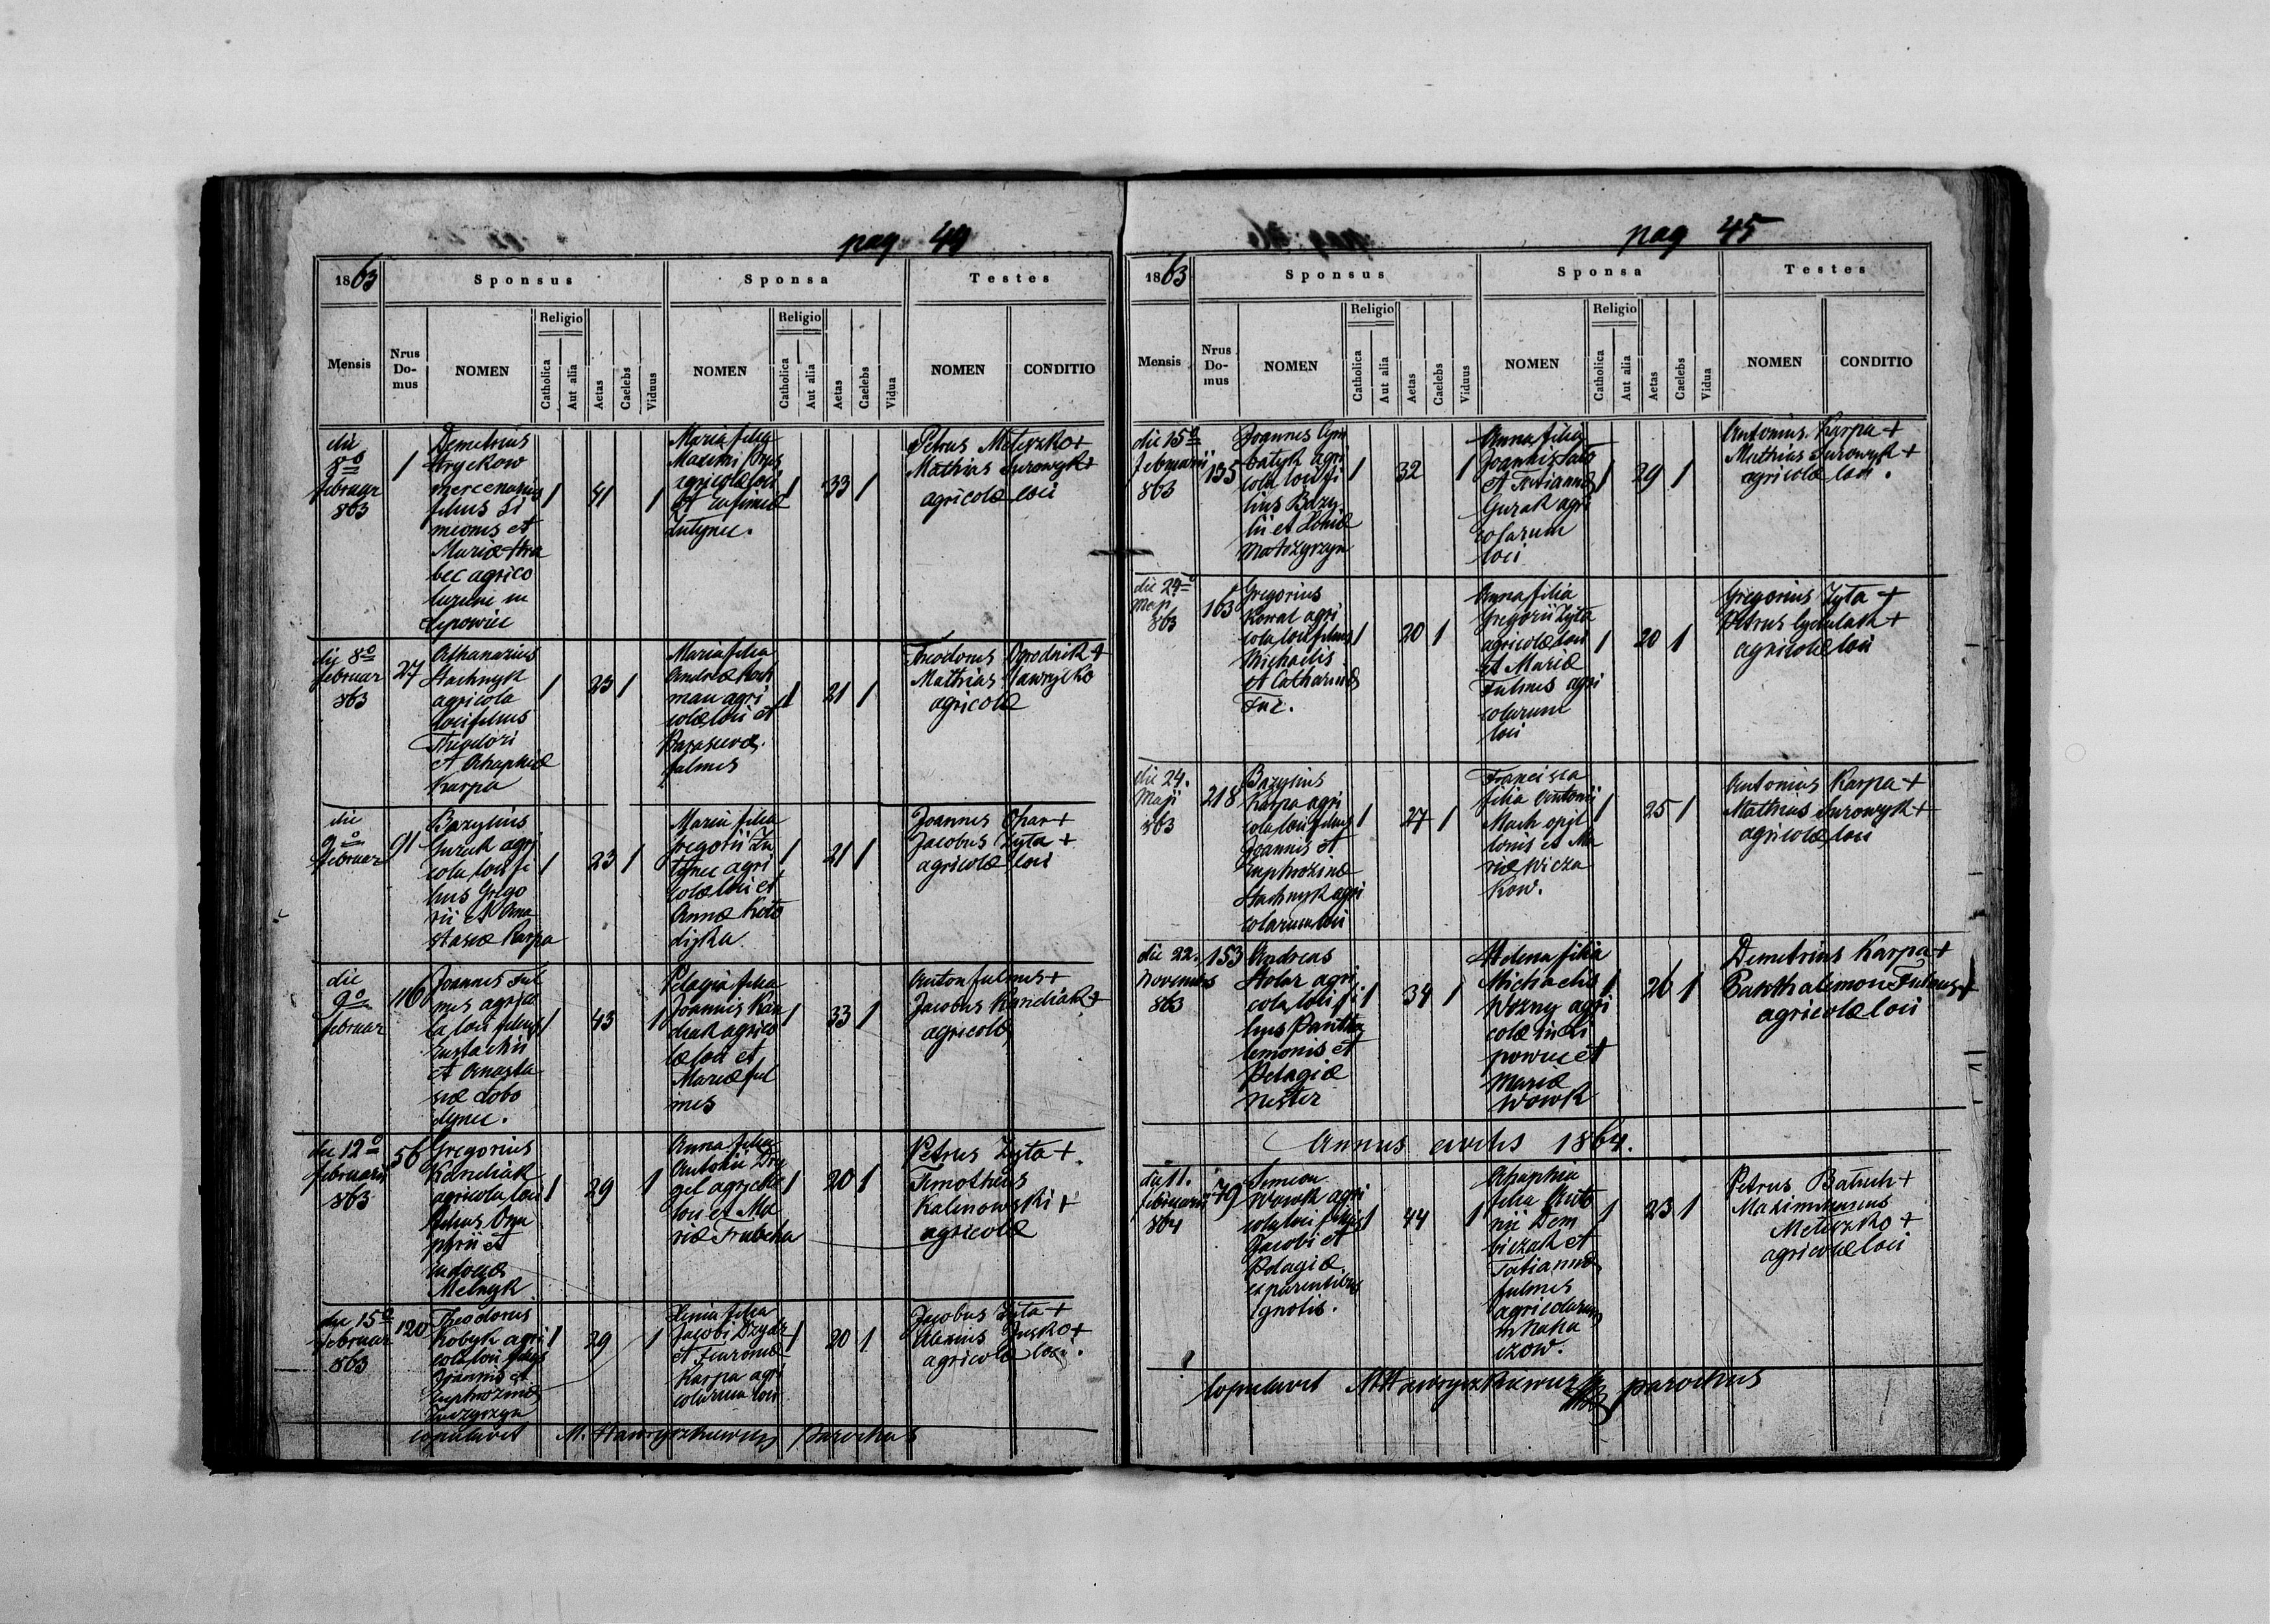 pag 44
1863
Sponsus
Sponsa
Testes
Mensis
Nrus Domus
NOMEN
Religio
Catholica
Aut alia
Aetas
Caelebs
Viduus
NOMEN
Religio
Catholica
Aut alia
Aetas
Caelebs
Vidua
NOMEN
CONDITIO
die
8o
februar
863
1
Demetrius
mercenarius
filius Si
meonis et
Mariæ Hra
bec agrico
larum in
Lipowiec
1
41
1
Maria filia
Maximi
agricolæ loci
et Eufimiæ
Lutynec.
1
33
1
Petrus Metyzko +
Mathias Surowyk +
agricolæ loci
die 8o
februar
863
27
Athanazius
Stachnyk
agricola
loci filius
Theodori
et Ahaphiæ
Karpa
1
23
1
Maria filia
Andreæ Koch
man agri
colæ loci et
Parasceva
fulmes
1
21
1
Theodorus Ogrodnik +
Mathias Hawryлko
agricolæ
die
9o
februar
91
Bazylius
Gurak agri
cola loci fi
lius Grego
rii et Ana
stasiæ Karpa
1
23
1
Maria filia
Gregorii Lu
tynec agri
colæ loci et
Annæ Koto
dizka
1
21
1
Joannes Ohar +
Jacobus Zyta +
agricolæ loci
die
9o
februar
116
Joannes Ful
mes agrico
la loci filius
Eustachii
et Anasta
siæ Lobo
dynec.
1
43
1
Pelagia filia
Joannis Kan
diak agrico
læ loci et
Mariæ ful
mes
1
33
1
Anton fulmes +
Jacobus Kandiak +
agricolæ
die 12o
februarii
863
56
Gregorius
Kandiak
agricola loci
filius Onu
phrii et
Eudociæ
Melnyk
1
29
1
Anna filia
Antonii Dry
gel agricolæ
loci et Ma
riæ Trubcha
1
20
1
Petrus Zyta +
Timotheus
Kalinowski +
agricolæ
die 15o
februar
863
120
Theodorus
Kobyk agri
cola loci filius
Joannis et
Euphroziniæ
1
29
1
Xenia filia
Jacobi Dzydz
et Fewroniæ
Karpa agri
colarum loci
1
20
1
Jacobus Zyta +
Alexius Jusko +
agricolæ loci.
copulavit M. Hawryszkiewicz Parochus
pag 45
1863
Sponsus
Sponsa
Testes
Mensis
Nrus Domus
NOMEN
Religio
Catholica
Aut alia
Aetas
Caelebs
Viduus
NOMEN
Religio
Catholica
Aut alia
Aetas
Caelebs
Vidua
NOMEN
CONDITIO
die 15o
februarii
863
135
Joannes Cym
batyk agri
cola loci fi
lius Bazy
lii et
Matozyrzyn
1
32
1
Anna filia
Joannis
et Tatiannæ
Gurak agri
colarum
loci
1
29
1
Antonius Karpa +
Mathias Surowyk +
agricolæ loci.
die 24o
Maji
863
163
Gregorius
Kowal agri
cola loci filius
Michaelis
et Catharinæ
Fuc.
1
20
1
Anna filia
Gregorii Zyta
agricolæ loci
et Mariæ
Fulmes agri
colarum
loci
1
20
1
Gregorius Zyta +
Petrus +
agricolæ loci
die 24.
Maji
863
218
Bazylius
Karpa agri
cola loci filius
Joannis et
Euphrozinæ
Stachnyk agri
colarum loci
1
27
1
Francisca
filia Antonii
Mach opil
ionis et Ma
riæ Wicza
kow.
1
25
1
Antonius Karpa +
Mathias Surowyk +
agricolæ loci
die 22.
Novembris
863
153
Andreas
Stolar agri
cola loci fi
lius Pantha
lemonis et
Pelagiæ
Nester
1
34
1
Helena filia
Michaelis
Wozny agri
colæ in Li
powiec et
Mariæ
Wowk
1
26
1
Demetrius Karpa +
Panthalimon Fulmes +
agricolæ loci
Annus civilis 1864.
die 11.
februarii
864
79
Simeon
Wowk agri
cola loci filius
Jacobi et
Pelagiæ
ex parentibus
ignotis.
1
44
1
Ahaphia
filia Anto
nii Dem
biczak et
Tatiannæ
fulmes
agricolarum
in Naha
czow.
1
23
1
Petrus Batuch +
Maximianus
Metyzko +
agricolæ loci
Copulavit M. Hawryszkiewicz parochus